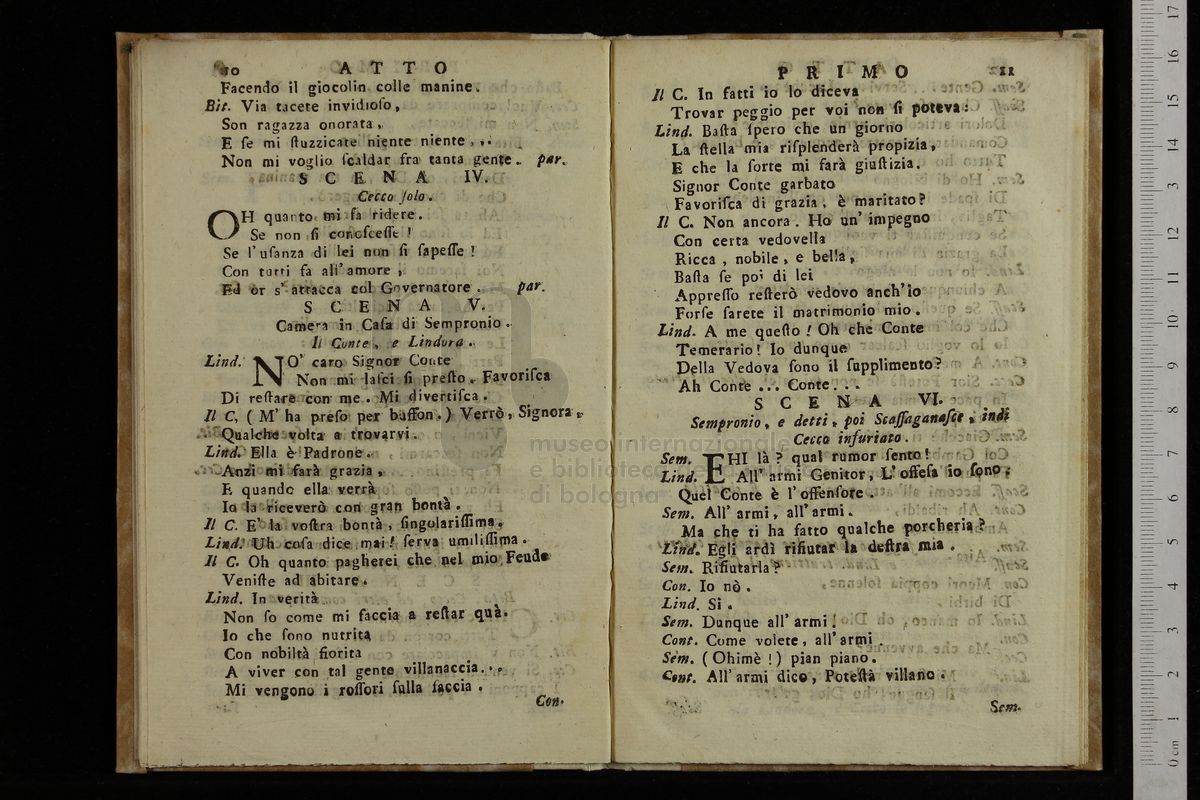 10 ATTO
Facendo il giocolin colle manine.
Bit. Via tacete invidioſo,
Son ragazza onorata,
E ſe mi ſtuzzicate niente niente ...
Non mi voglio ſcaldar fra tanta gente. par.
SCENA IV.
Cecco ſolo.
OH quanto mi fa ridere.
Se non ſi conoſceſſe!
Se l'uſanza di lei non ſi ſapeſſe!
Con tutti fa all'amore,
Ed or s'attacca col Governatore. par.
SCENA V.
Camera in Caſa di Sempronio.
Il Conte, e Lindora.
Lind. NO' caro Signor Conte
Non mi laſci ſi preſto. Favoriſca
Di reſtare con me. Mi divertiſca.
Il C. (M'ha preſo per buffon.) Verrò, Signora,
Qualche volta a trovarvi.
Lind. Ella è Padrone.
Anzi mi farà grazia,
E quando ella verrà
Io la riceverò con gran bontà.
Il C. E' la voſtra bontà, ſingolariſſima.
Lind. Uh coſa dice mai! ſerva umiliſſima.
Il C. Oh quanto pagherei che nel mio Feudo
Veniſte ad abitare.
Lind. In verità
Non ſo come mi faccia a reſtar quà.
Io che ſono nutrita
Con nobiltà fiorita
A viver con tal gente villanaccia...
Mi vengono i roſſori ſulla faccia.
Con.
PRIMO 11
Il C. In fatti io lo diceva
Trovar peggio per voi non ſi poteva:
Lind. Baſta ſpero che un giorno
La ſtella mia riſplenderà propizia,
E che la ſorte mi farà giuſtizia.
Signor Conte garbato
Favoriſca di grazia, è maritato?
Il C. Non ancora. Ho un' impegno
Con certa vedovella
Ricca, nobile, e bella,
Baſta ſe poi di lei
Appreſſo reſterò vedovo anch'io
Forſe ſarete il matrimonio mio.
Lind. A me queſto! Oh che Conte
Temerario! Io dunque
Della Vedova ſono il ſupplimento?
Ah Conte ... Conte...
SCENA VI.
Sempronio, e detti, poi Scaſſaganaſce, indi
Cecco infuriato.
Sem. EHI là? qual rumor ſento!
Lind. All' armi Genitor, L'offeſa io ſono;
Quel Conte è l'offenſore.
Sem. All' armi, all' armi.
Ma che ti ha fatto qualche porcheria?
Lind. Egli ardì rifiutar la deſtra mia.
Sem. Rifiutarla?
Con. Io nò.
Lind. Sì.
Sem. Dunque all' armi!
Cont. Come volete, all' armi.
Sem. (Ohimè!) pian piano.
Cont. All' armi dico, Poteſtà villano.
Sem.
museo internazionale
e biblioteca della musica
di bologna